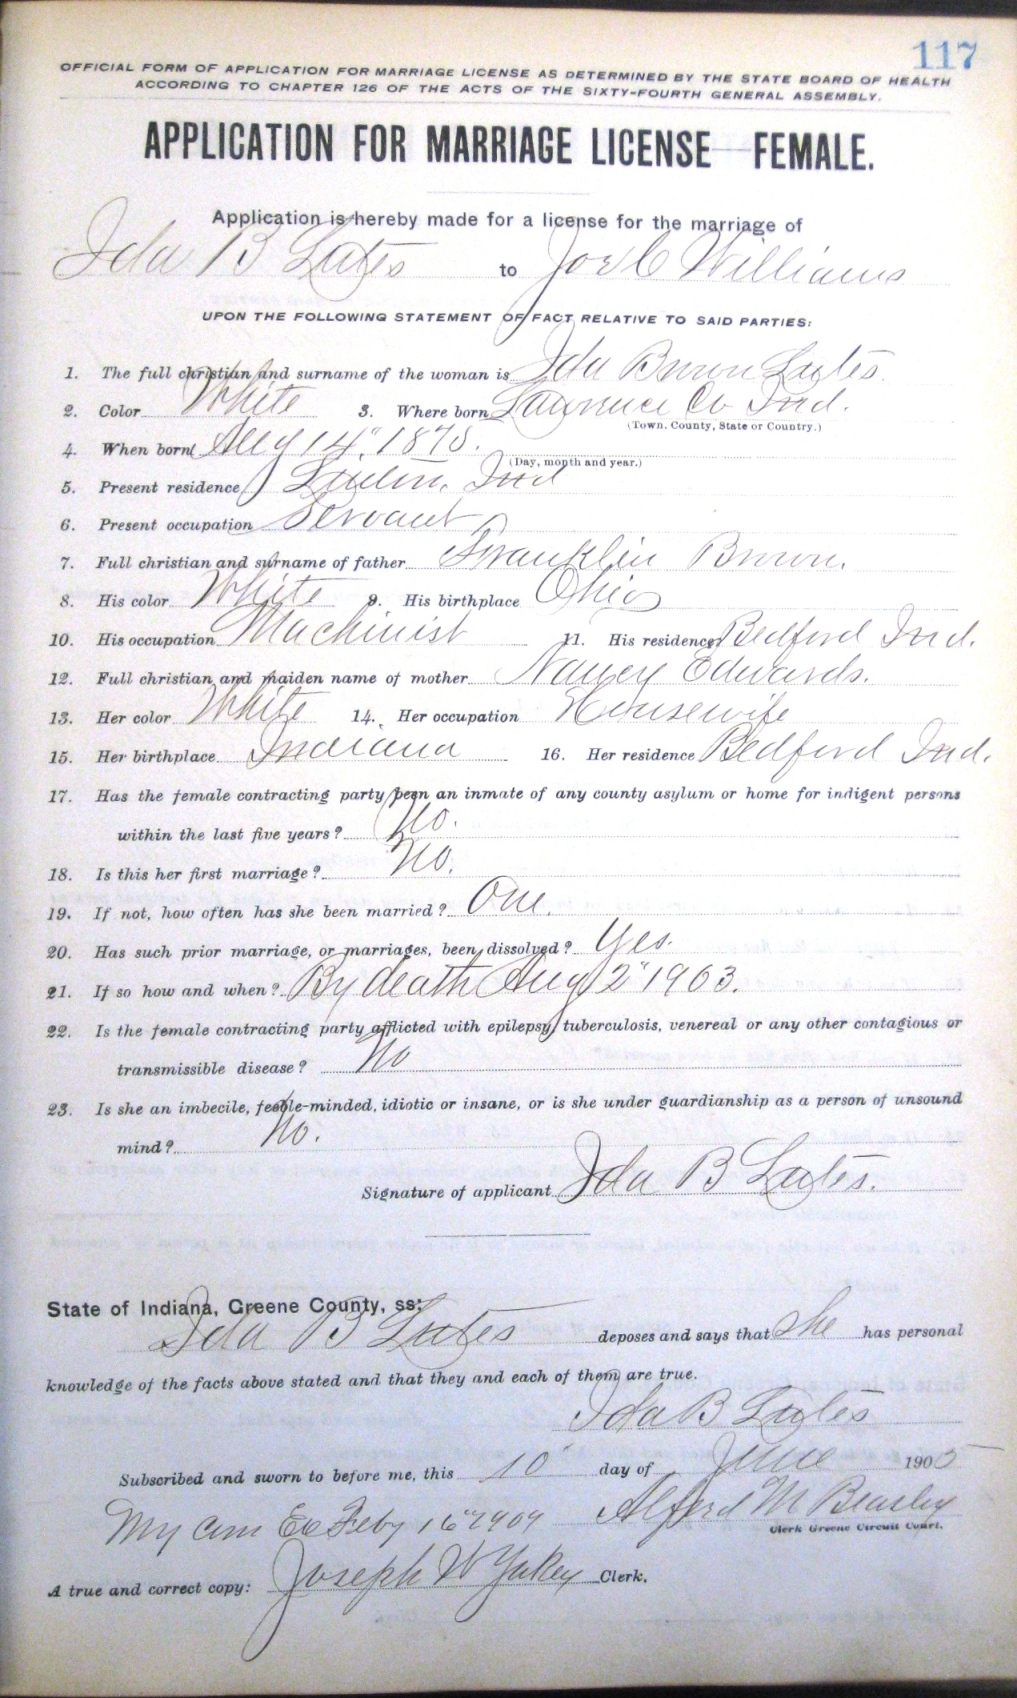 117
OFFICIAL FORM OF APPLICATION FOR MARRIAGE LICENSE AS DETERMINED BY THE STATE BOARD OF HEALTH
ACCORDING TO CHAPTER 126 OF THE ACTS OF THE SIXTY-FOURTH GENERAL ASSEMBLY.
APPLICATION FOR MARRIAGE LICENSE FEMALE.
Application is hereby made for a license for the marriage of
Ida B Lutes to Joe C Williams
UPON THE FOLLOWING STATEMENT OF FACT RELATIVE TO SAID PARTIES:
1. The full christian and surname of the woman is Ida Brown Lutes.
2. Color White 3. Where born Lawrence Co Ind.
(Town. County, State or Country.)
4. When born Aug 14" 1875.
(Day, month and year.)
5. Present residence Ind
6. Present occupation Servant
7. Full christian and surname of father Franklin Brown.
8. His color White 9. His birthplace Ohio
10. His occupation Machinist 11. His residence Bedford Ind.
12. Full christian and maiden name of mother Nancy Edwards.
13. Her color White 14. Her occupation Housewife
15. Her birthplace Indiana 16. Her residence Bedford Ind.
17. Has the female contracting party been an inmate of any county asylum or home for indigent persons
within the last five years? No.
18. Is this her first marriage? No.
19. If not, how often has she been married? One.
20. Has such prior marriage, or marriages, been dissolved? Yes.
21. If so how and when? By death Aug 2" 1903.
22. Is the female contracting party afflicted with epilepsy, tuberculosis, venereal or any other contagious or
transmissible disease? No
23. Is she an imbecile, feeble-minded, idiotic or insane, or is she under guardianship as a person of unsound
mind? No.
Signature of applicant Ida B Lutes.
State of Indiana, Greene County, ss:
Ida B Lutes deposes and says that She has personal
knowledge of the facts above stated and that they and each of them are true.
Ida B Lutes
Subscribed and sworn to before me, this 10" day of June 1905
My Com Ex Feby 16" 1909 Alferd M Beasley
Clerk Greene Circuit Court.
A true and correct copy: Joseph W Yakey Clerk.